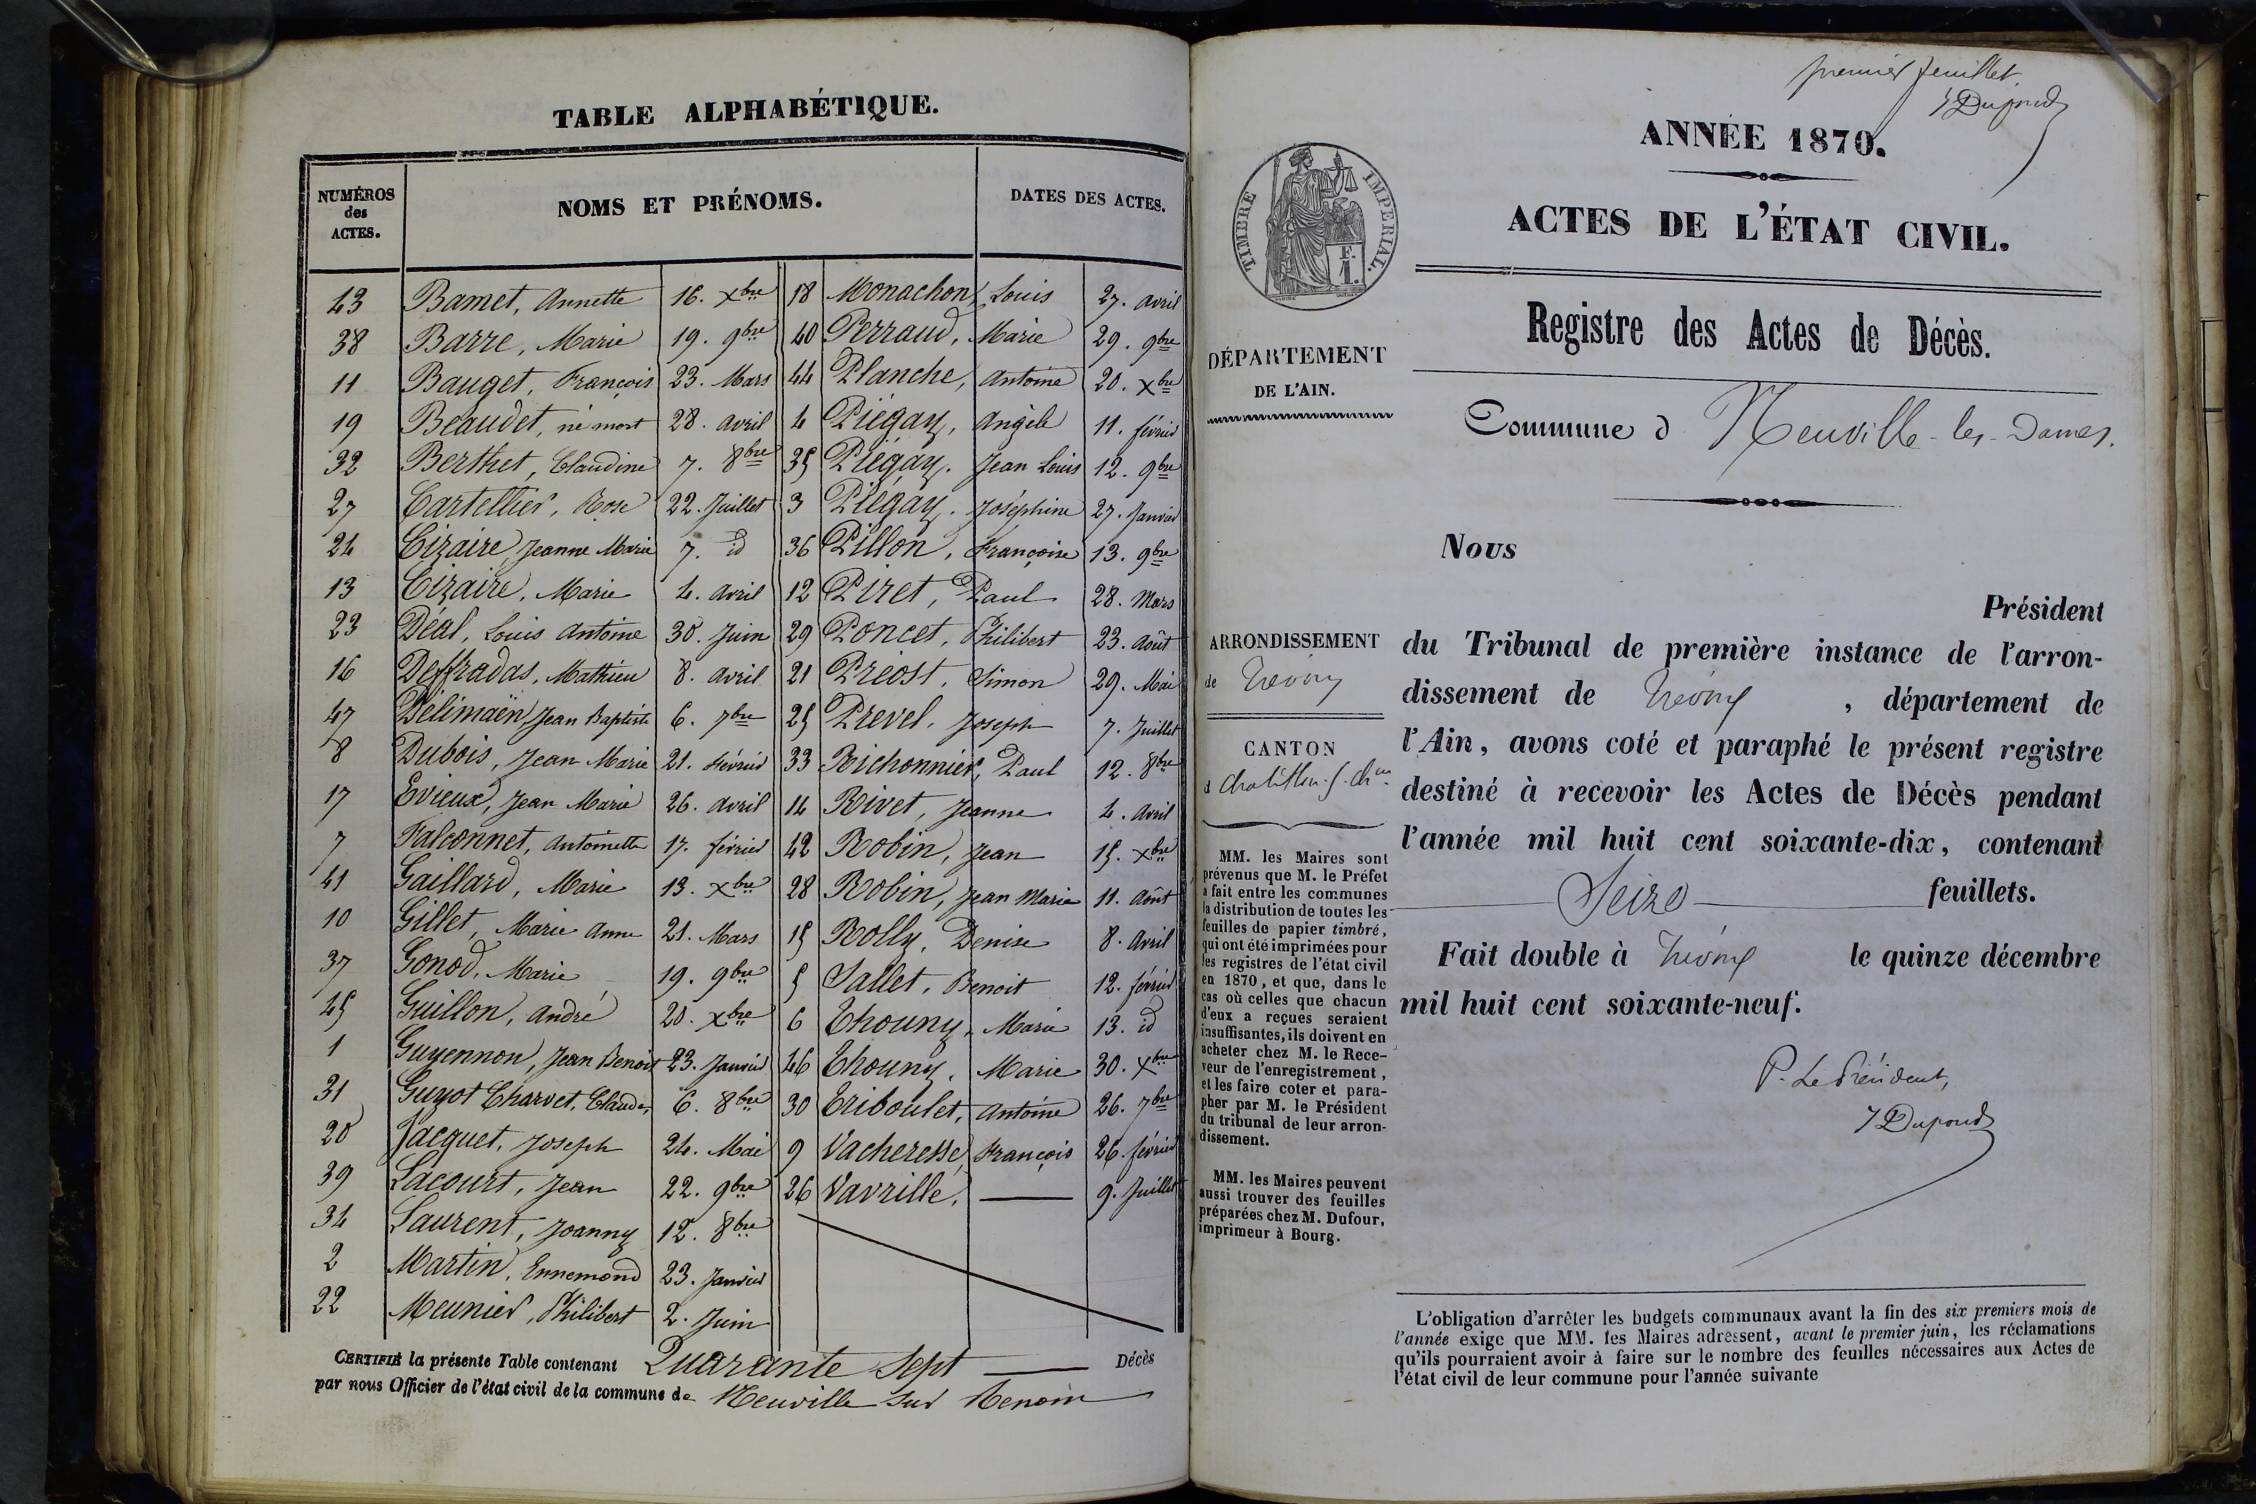 TABLE ALPHABÉTIQUE.
NUMÉROS
des
ACTES.
NOMS ET PRÉNOMS.
DATES DES ACTES.
43 Bamet, Annette 16. Xbre
38 Barre, Marie 19. 9bre
11 Bauget, François 23. Mars
19 Beaudet, né mort 28. avril
32 Berthet, Claudine 7. 8bre
27 Cartellier, Rose 22. Juillet
24 Cizaire, Jeanne Marie 7. id
13 Cizaire, Marie 4. avril
23 Déal, Louis Antoine 30. Juin
16 Deffradas, Mathieu 8. avril
47 Délimaën, Jean Baptiste 6. 7bre
8 Dubois, Jean Marie 21. février
17 Evieux, Jean Marie 26. avril
7 Falconnet, Antoinette 17. février
41 Gaillard, Marie 13. Xbre
10 Gillet, Marie Anne 21. Mars
37 Gonod, Marie 19. 9bre
45 Guillon, André 20. Xbre
1 Guyennon, Jean Benoit 23. Janvier
31 Guyot Charvet, Claude 6. 8bre
20 Jacquet, Joseph 24. Mai
39 Lacourt, Jean 22. 9bre
34 Laurent, Joanny 12. 8bre
2 Martin, Ennemond 23. Janvier
22 Meunier, Philibert 2. Juin
18 Monachon, Louis 27. avril
40 Perraud, Marie 29. 9bre
44 Planche, Antoine 20. Xbre
4 Piégay, Angèle 11. février
35 Piégay. Jean Louis 12. 9bre
3 Piégay. Joséphine 27. Janvier
36 Pillon, Françoise 13. 9bre
12 Piret, Paul 28. Mars
29 Poncet, Philibert 23. Août
21 Préost, Simon 29. Mai
25 Prevel. Joseph 7. Juillet
33 Richonnier, Paul 12. 8bre
14 Rivet, Jeanne 4. avril
42 Robin, Jean 15. Xbre
28 Robin, Jean Marie 11. Août
15 Rolly, Denise 8. Avril
5 Sallet, Benoit 12. février
6 Thouny, Marie 13. id
46 Thouny, Marie 30. Xbre
30 Triboulet, Antoine 26. 7bre
9 Vacheresse, François 26. février
26 Vavrille, 9. Juillet
CERTIFIÉ la présente Table contenant Quarante Sept Décès
par nous Officier de l'état civil de la commune de Neuville sur Renom
premier feuillet.
Dupond
ANNÉE 1870.
ACTES DE L'ÉTAT CIVIL.
TIMBRE IMPERIAL.
F.
1.
Registre des Actes de Décès.
DÉPARTEMENT
DE L'AIN.
Commune d Neuville-les-Dames.
Nous
Président
ARRONDISSEMENT
de Trévoux
CANTON
d Chatillon-s-Chne
du Tribunal de première instance de l'arron-
dissement de Trévoux, département de
l'Ain, avons coté et paraphé le présent registre
destiné à recevoir les Actes de Décès pendant
l'année mil huit cent soixante-dix, contenant
Seize feuillets.
Fait double à Trévoux le quinze décembre
mil huit cent soixante-neuf.
P. Le Président,
Dupond
MM. les Maires sont
prévenus que M. le Préfet
a fait entre les communes
la distribution de toutes les
feuilles de papier timbré,
qui ont été imprimées pour
les registres de l'état civil
en 1870, et que, dans le
cas où celles que chacun
d'eux a reçues seraient
insuffisantes, ils doivent en
acheter chez M. le Rece-
veur de l'enregistrement,
et les faire coter et para-
pher par M. le Président
du tribunal de leur arron-
dissement.
MM. les Maires peuvent
aussi trouver des feuilles
préparées chez M. Dufour,
imprimeur à Bourg.
L'obligation d'arrêter les budgets communaux avant la fin des six premiers mois de
l'année exige que MM. les Maires adressent, avant le premier juin, les réclamations
qu'ils pourraient avoir à faire sur le nombre des feuilles nécessaires aux Actes de
l'état civil de leur commune pour l'année suivante